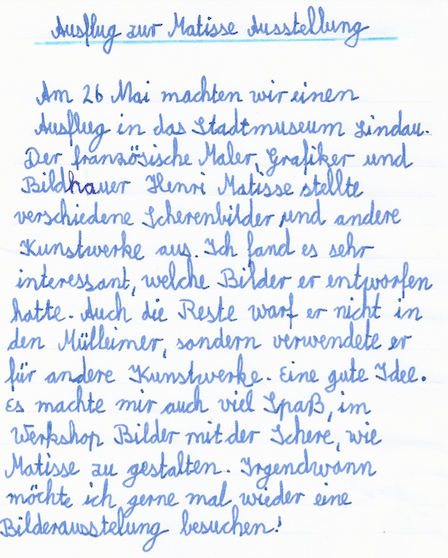 Ausflug zur Matisse Ausstellung
Am 26 Mai machten wir einen
Ausflug in das Stadtmuseum Lindau.
Der französische Maler, Grafiker und
Bildhauer Henri Matisse stellte
verschiedene Scherenbilder und andere
Kunstwerke aus. Ich fand es sehr
interessant, welche Bilder er entworfen
hatte. Auch die Reste warf er nicht in
den Mülleimer, sondern verwendete er
für andere Kunstwerke. Eine gute Idee.
Es machte mir auch viel Spaß, im
Werkshop Bilder mit der Schere, wie
Matisse zu gestalten. Irgendwann
möchte ich gerne mal wieder eine
Bilderausstelung besuchen!